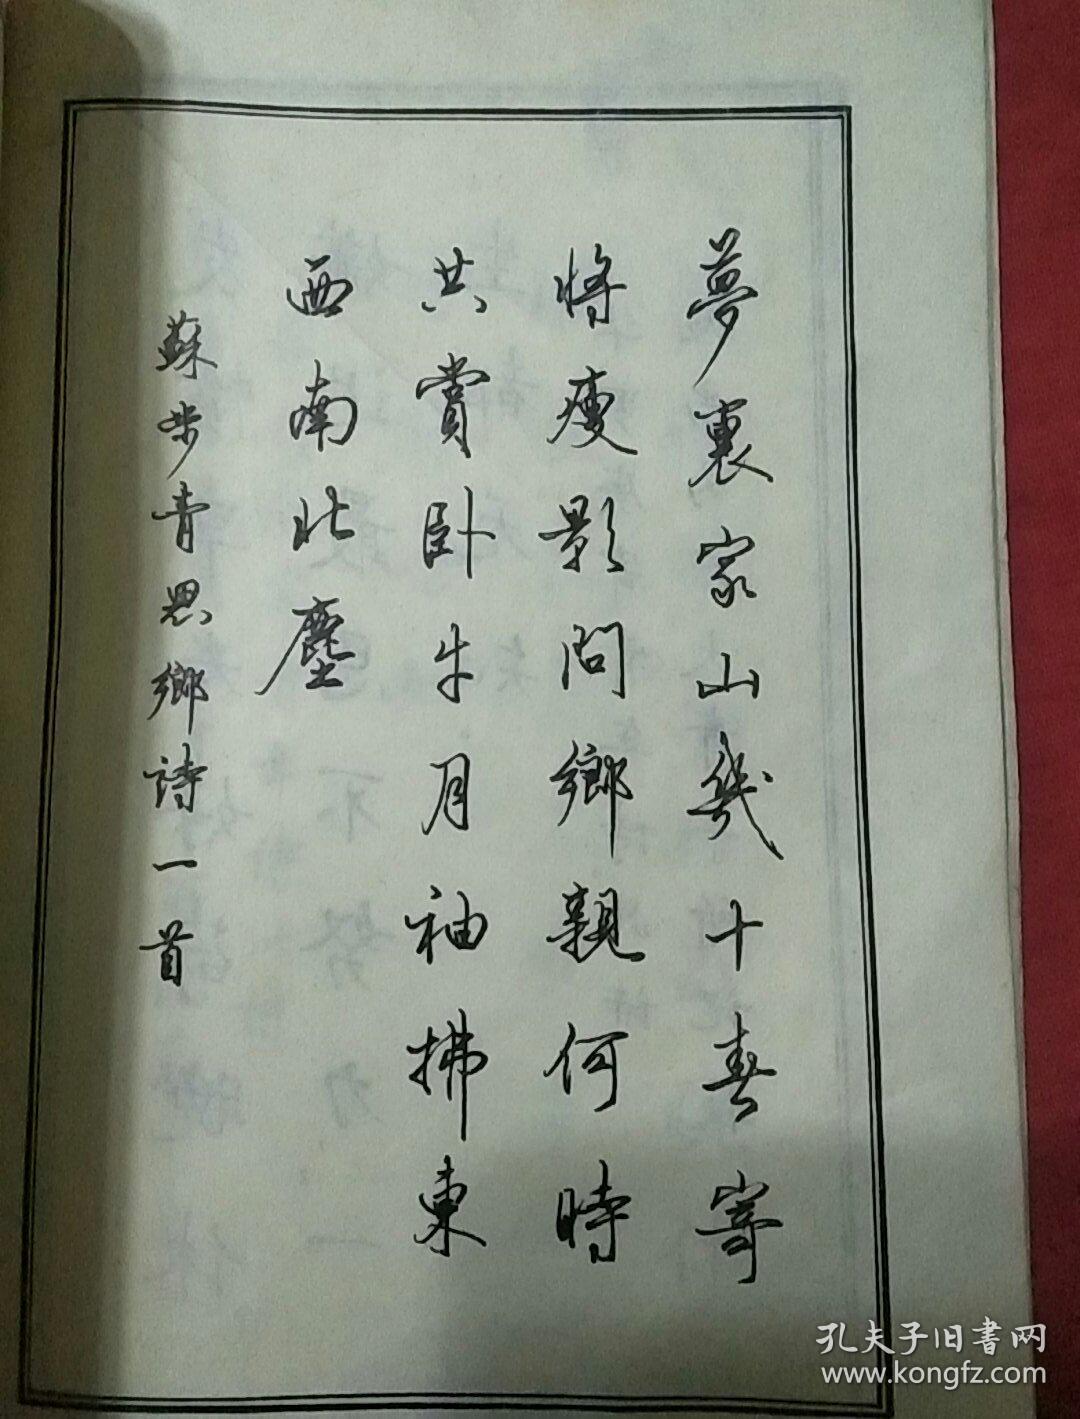 夢裏家山幾十春寄
將瘦影問鄉親何時
共賞卧牛月袖拂東
西南北塵
蘇步青思鄉詩一首
孔夫子旧書网
www.kongfz.com